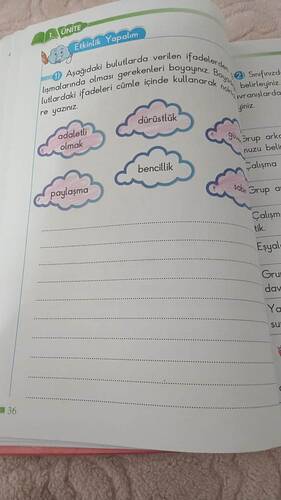 1. ÜNİTE
Etkinlik Yapalım
1) Aşağıdaki bulutlarda verilen ifadelerden
lışmalarında olması gerekenleri boyayınız.
lutlardaki ifadeleri cümle içinde kullanarak
re yazınız.
adaletli
olmak
dürüstlük
paylaşma
bencillik
36
2) Sınıfınızd
belirleyiniz.
vranışlarda
yiniz.
Grup arka
nuzu beli
Çalışma
Grup a
Çalışm
tik.
Eşyal
Gru
dav
Ya
su